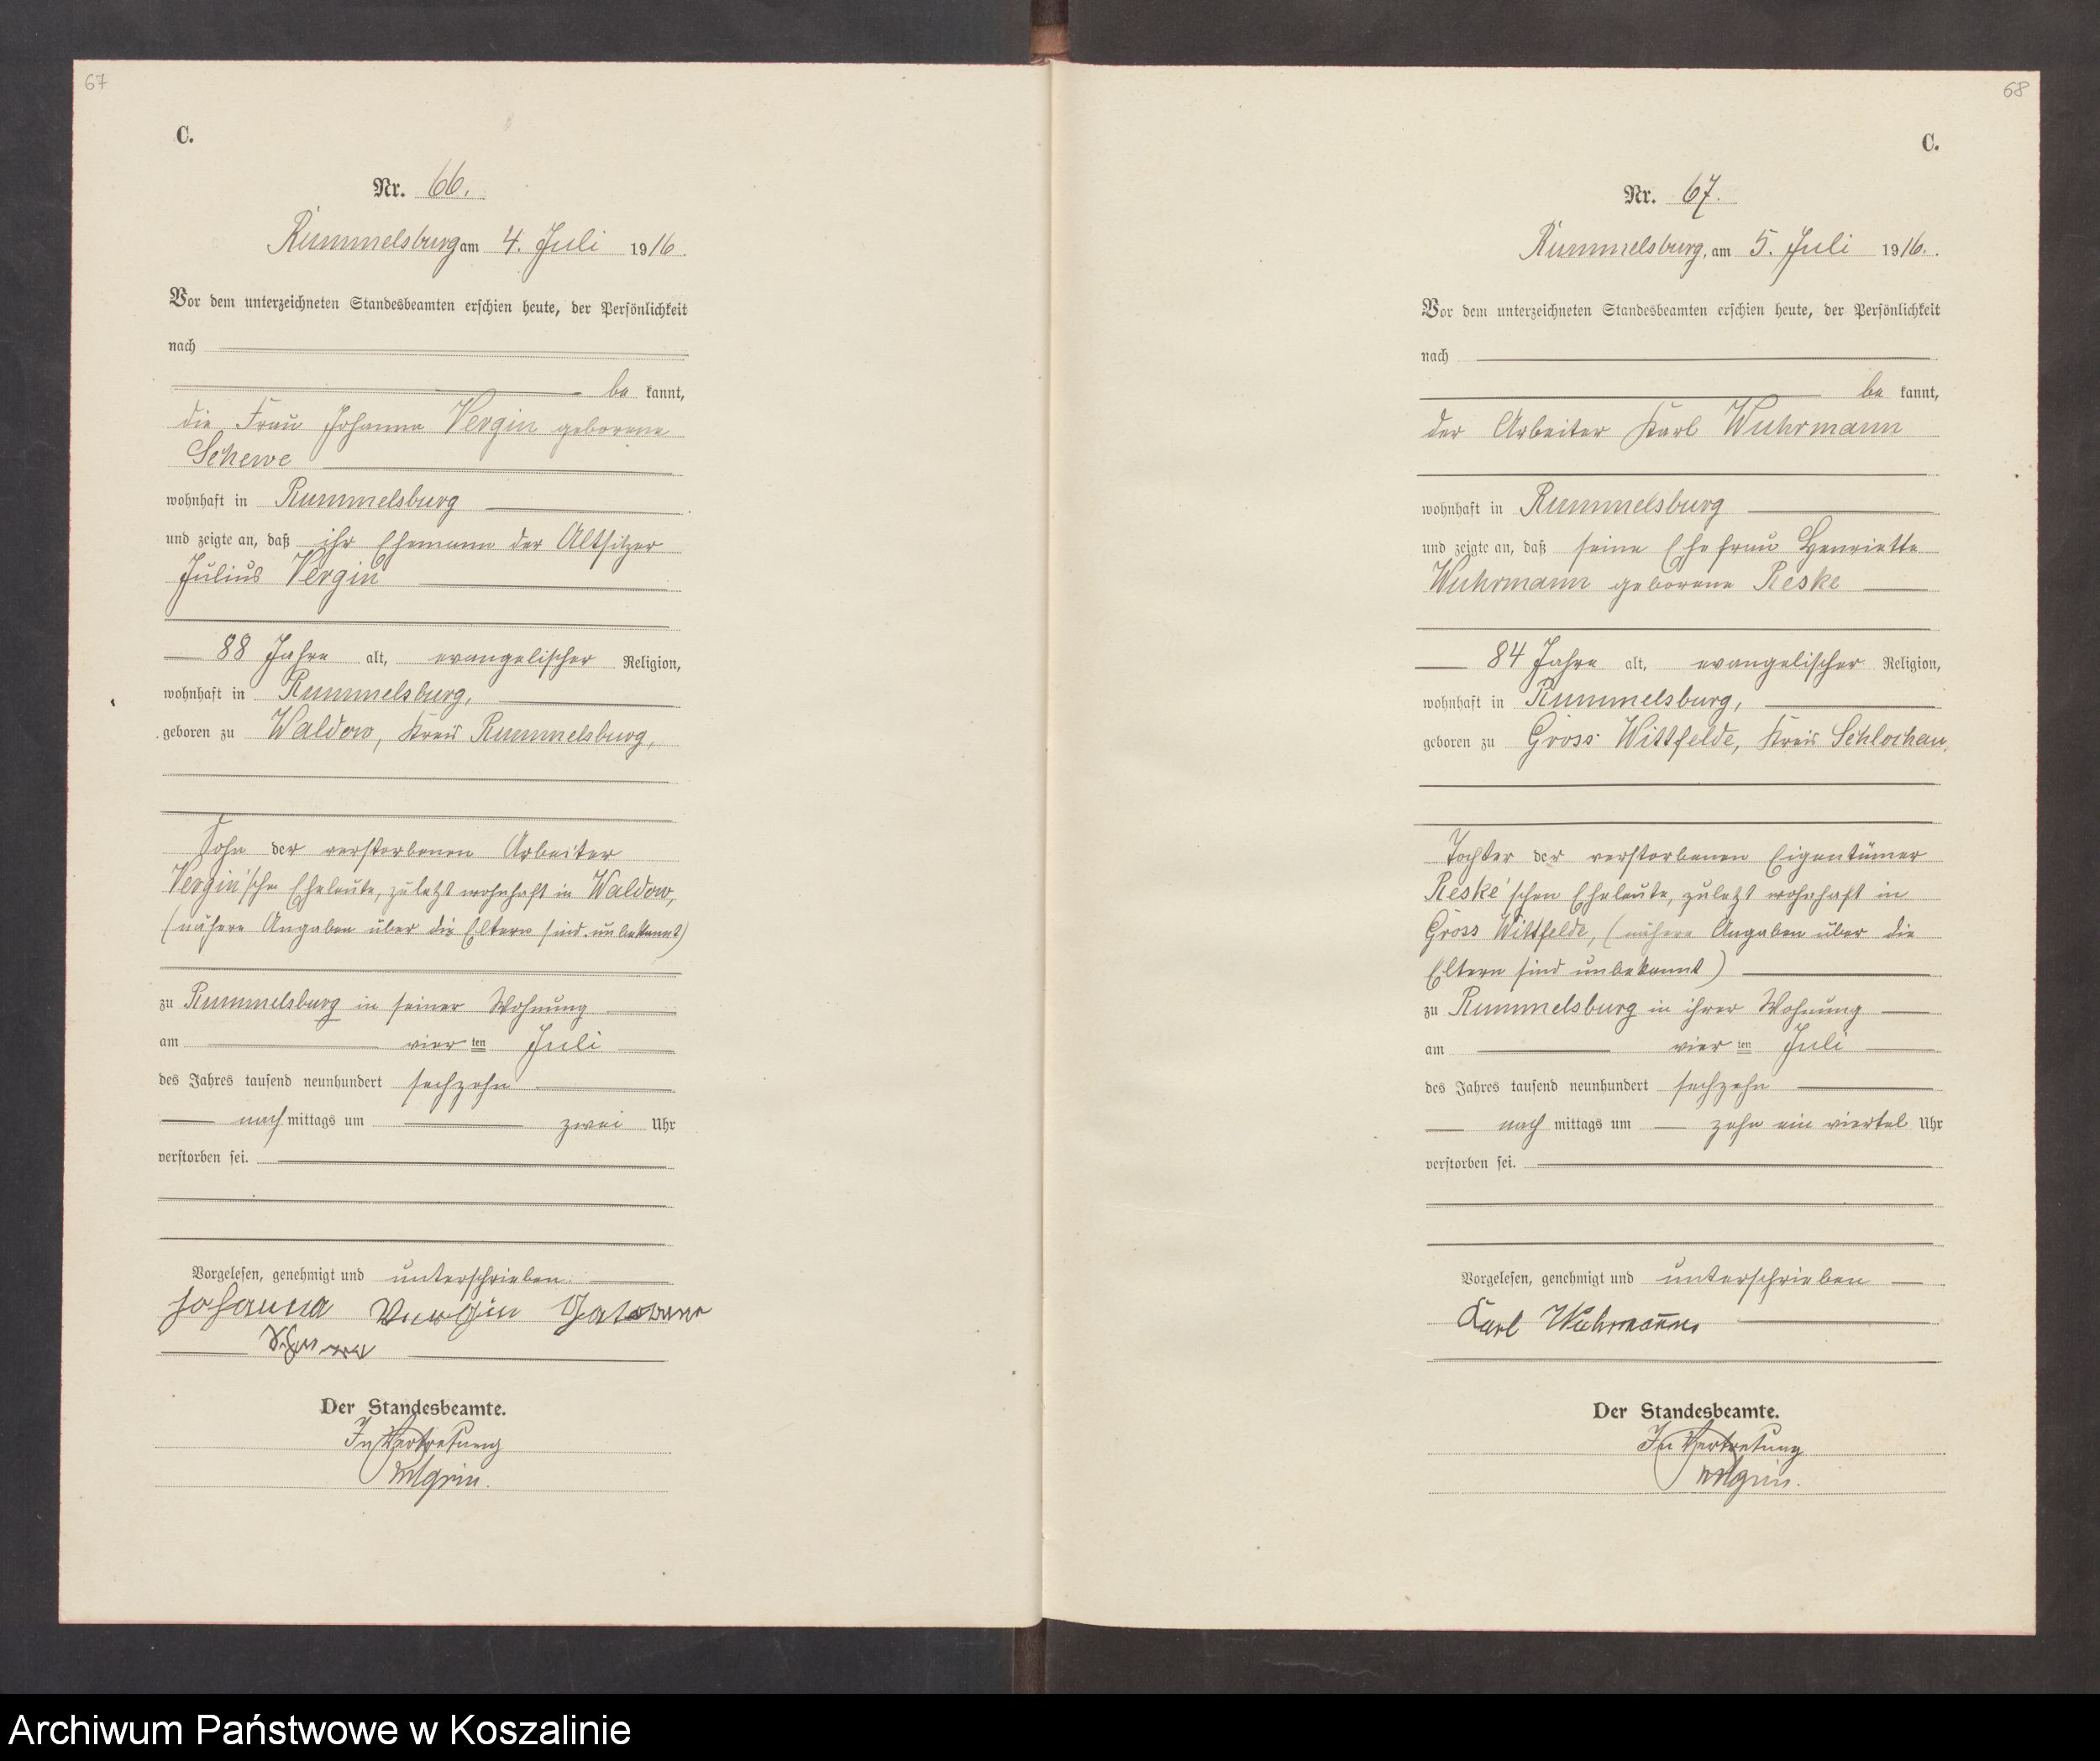 67
C.
Nr. 66.
Rummelsburg am 4. Juli 1916.
Vor dem unterzeichneten Standesbeamten erschien heute, der Persönlichkeit
nach
be kannt,
die Frau Johanna Vergin geborene
Schewe
wohnhaft in Rummelsburg
und zeigte an, daß ihr Ehemann der Altsitzer
Julius Vergin
88 Jahre alt, evangelischer Religion,
wohnhaft in Rummelsburg,
geboren zu Waldow, Kreis Rummelsburg,
Sohn der verstorbenen Arbeiter
Vergin'schen Eheleute, zuletzt wohnhaft in Waldow,
(nähere Angaben über die Eltern sind unbekannt)
zu Rummelsburg in seiner Wohnung
am vier ten Juli
des Jahres tausend neunhundert sechzehn
nach mittags um zwei Uhr
verstorben sei.
Vorgelesen, genehmigt und unterschrieben.
Johanna Vergin Geborene
Schewe
Der Standesbeamte.
In Vertretung
68
C.
Nr. 67.
Rummelsburg, am 5. Juli 1916.
Vor dem unterzeichneten Standesbeamten erschien heute, der Persönlichkeit
nach
be kannt,
der Arbeiter Karl Wuhrmann
wohnhaft in Rummelsburg
und zeigte an, daß seine Ehefrau Henriette
Wuhrmann geborene Reske
84 Jahre alt, evangelischer Religion,
wohnhaft in Rummelsburg,
geboren zu Gross Wittfelde, Kreis Schlochau,
Tochter der verstorbenen Eigentümer
Reske'schen Eheleute, zuletzt wohnhaft in
Gross Wittfelde, (nähere Angaben über die
Eltern sind unbekannt)
zu Rummelsburg in ihrer Wohnung
am vier ten Juli
des Jahres tausend neunhundert sechzehn
nach mittags um zehn ein viertel Uhr
verstorben sei.
Vorgelesen, genehmigt und unterschrieben
Karl Wuhrmann
Der Standesbeamte.
In Vertretung
Archiwum Państwowe w Koszalinie